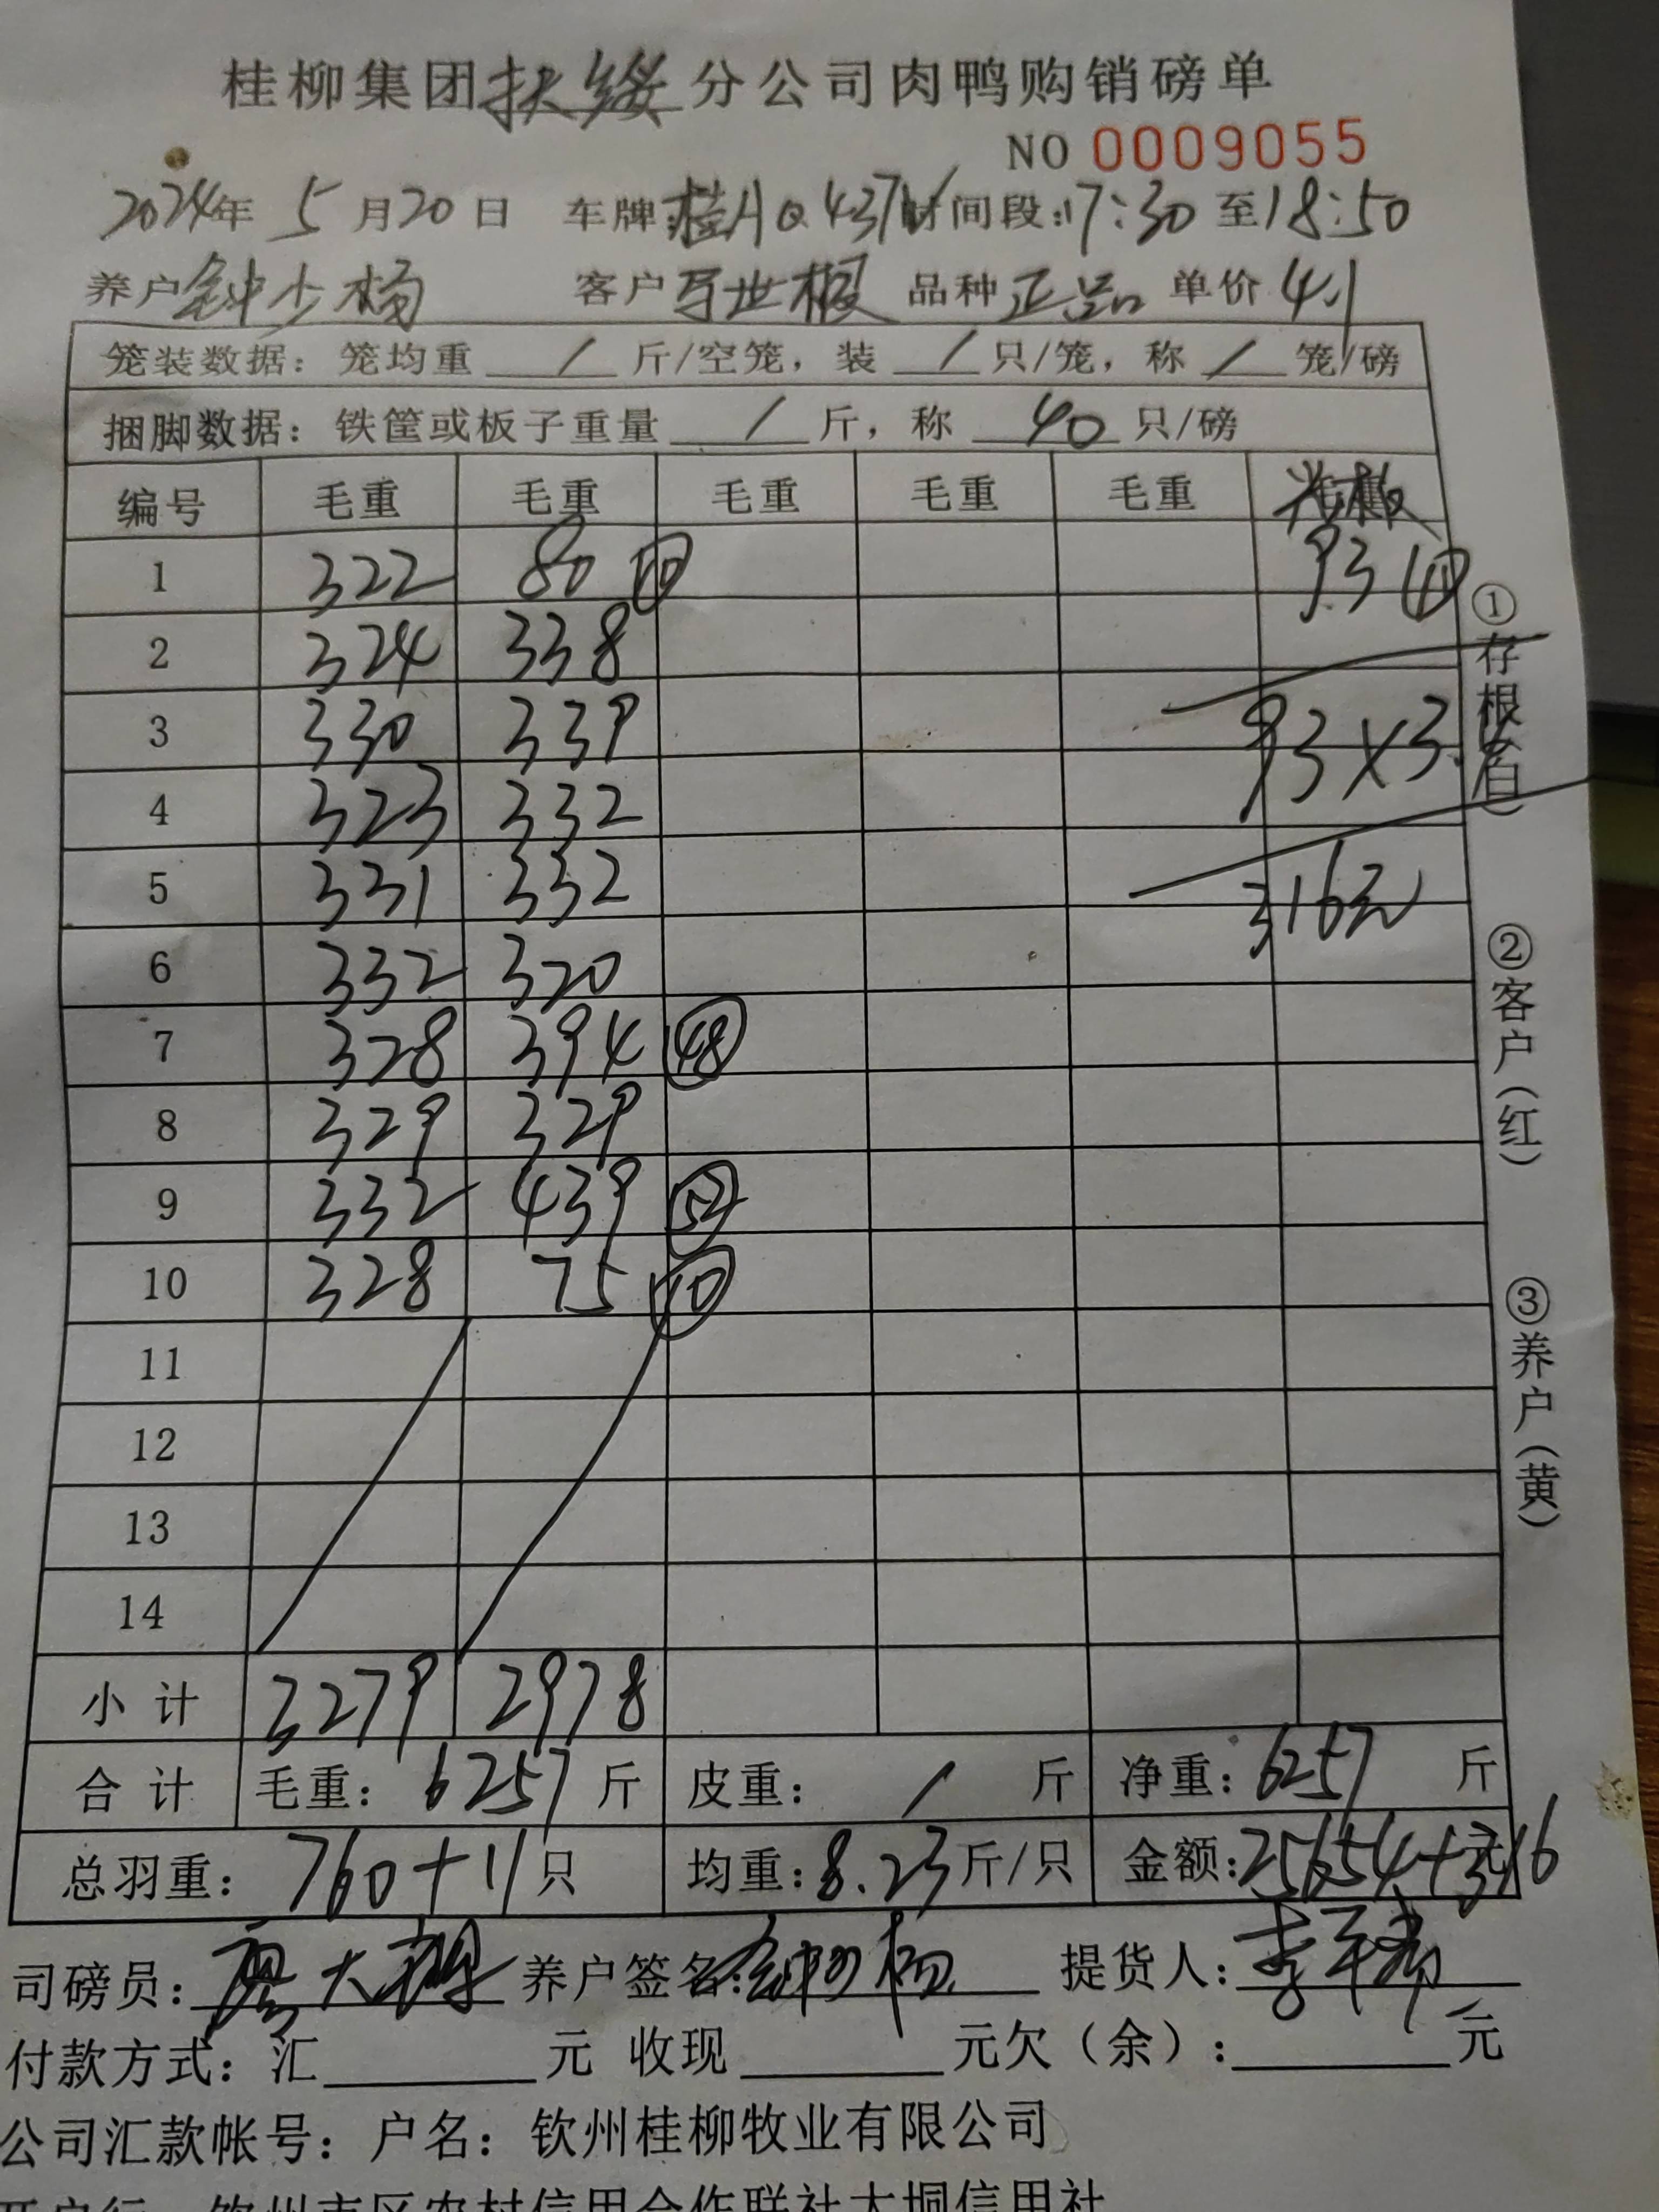 桂柳集团扶绥分公司肉鸭购销磅单
NO 0009055
2024年 5月20日 车牌桂A Q437 时间段:17:30至18:50
养户钟少杨 客户 世 品种正品 单价4.1
笼装数据：笼均重 / 斤/空笼，装 / 只/笼，称 / 笼/磅
捆脚数据：铁筐或板子重量 / 斤，称 40 只/磅
编号 毛重 毛重 毛重 毛重 毛重
1 322 80 ⑩ 93 ⑪
2 324 338
3 330 339 93×3.
4 323 332
5 331 332 316元
6 332 320
7 328 394 ㊽
8 329 329
9 332 439 52
10 328 75 ⑩
11
12
13
14
小计 3279 2978
合计 毛重：6257斤 皮重： / 斤 净重：6257 斤
总羽重：760+11只 均重：8.23斤/只 金额：25654+316
司磅员： 大 养户签名：钟少杨 提货人：李
付款方式：汇 元 收现 元欠（余）： 元
公司汇款帐号：户名：钦州桂柳牧业有限公司
开户行：钦州市区农村信用合作联社大垌信用社
①存根（白）
②客户（红）
③养户（黄）